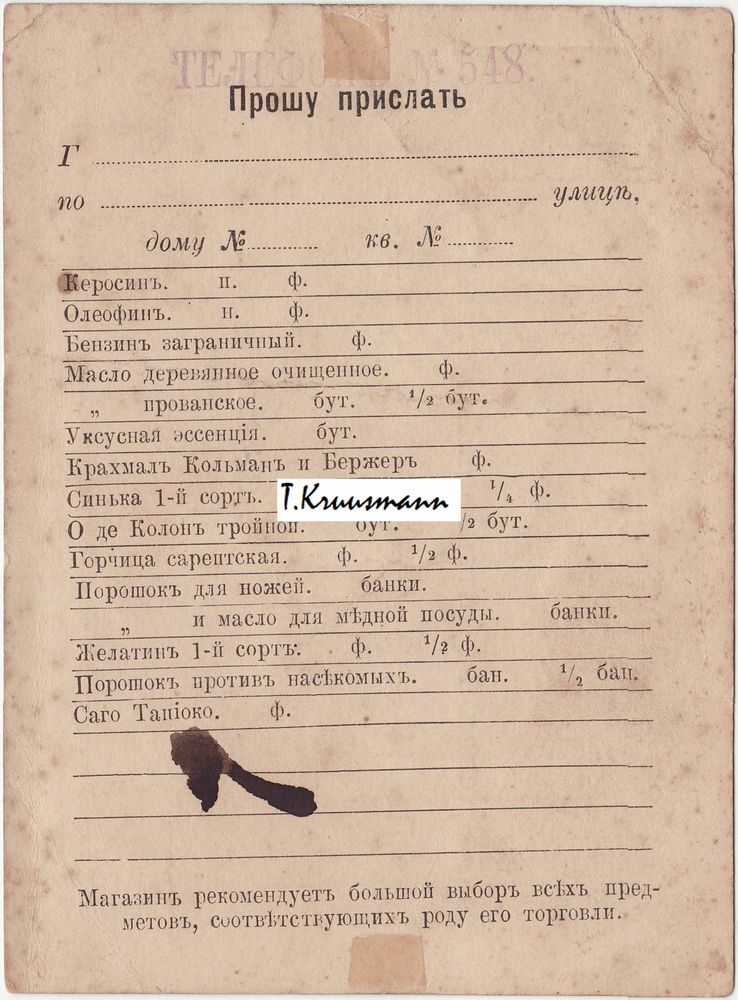 ТЕЛЕФОНЪ № 548.
Прошу прислать
Г
по улицѣ,
дому № кв. №
Керосинъ. п. ф.
Олеофинъ. п. ф.
Бензинъ заграничный. ф.
Масло деревянное очищенное. ф.
„ прованское. бут. 1/2 бут.
Уксусная эссенція. бут.
Крахмалъ Кольманъ и Бержеръ ф.
Синька 1-й сортъ. 1/4 ф.
T.Kruusmann
О де Колонъ тройной. бут. 1/2 бут.
Горчица сарептская. ф. 1/2 ф.
Порошокъ для ножей. банки.
„ и масло для мѣдной посуды. банки.
Желатинъ 1-й сортъ. ф. 1/2 ф.
Порошокъ противъ насѣкомыхъ. бан. 1/2 бан.
Саго Тапіоко. ф.
Магазинъ рекомендуетъ большой выборъ всѣхъ пред-
метовъ, соотвѣтствующихъ роду его торговли.